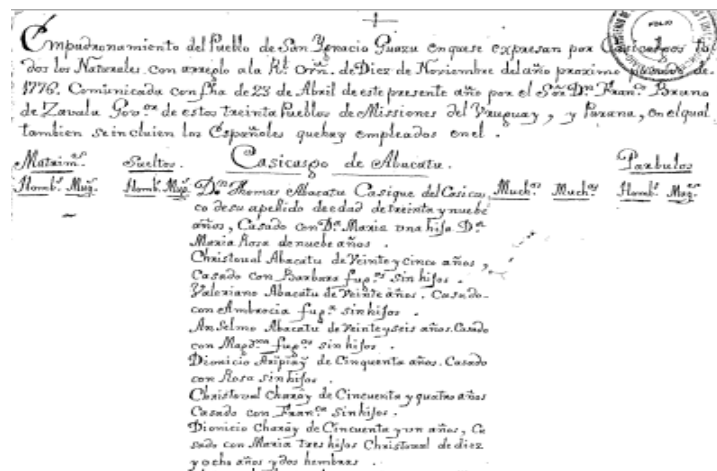 Empadronamiento del Pueblo de San Ygnacio Guazu en que se expresan por Casicasgos to
dos los Naturales con arreglo ala Rl. Orn. de Diez de Noviembre del año proximo pasado de
1776. Comunicada con fha de 23 de Abril de este presente año por el Sor. Dn. Franco. Bruno
de Zavala Govor. de estos treinta Pueblos de Missiones del Uruguay, y Parana, en el qual
tambien se incluien los Españoles que hay empleados en el.
Matrims. Sueltos. Casicasgo de Abacatu. Parbulos
Hombs. Mugs. Homb. Mug. Muchos. Muchas. Homb. Mugs.
FOLIO
1
Dn. Thomas Abacatu Casique del Casicas
co de su apellido de edad de treinta y nuebe
años, Casado con Da. Maria una hija Da.
Maria Rosa de nuebe años.
Christoval Abacatu de Veinte y Cinco años,
Casado con Barbara fugos. sin hijos.
Valeriano Abacatu de Veinte años. Casado
con Ambrocia fuga. sin hijos.
Anselmo Abacatu de Veinte y seis años. Casado
con Magdna. fugos. sin hijos.
Dionicio Aripiáÿ de Cinquenta años. Casado
con Rosa sin hijos.
Christoval Charáÿ de Cincuenta y quatro años
Casado con Franca. Sin hijos.
Dionicio Charáÿ de Cincuenta y un años, Ca
sado con Maria tres hijos Christoval de diez
y ocho años y dos hembras